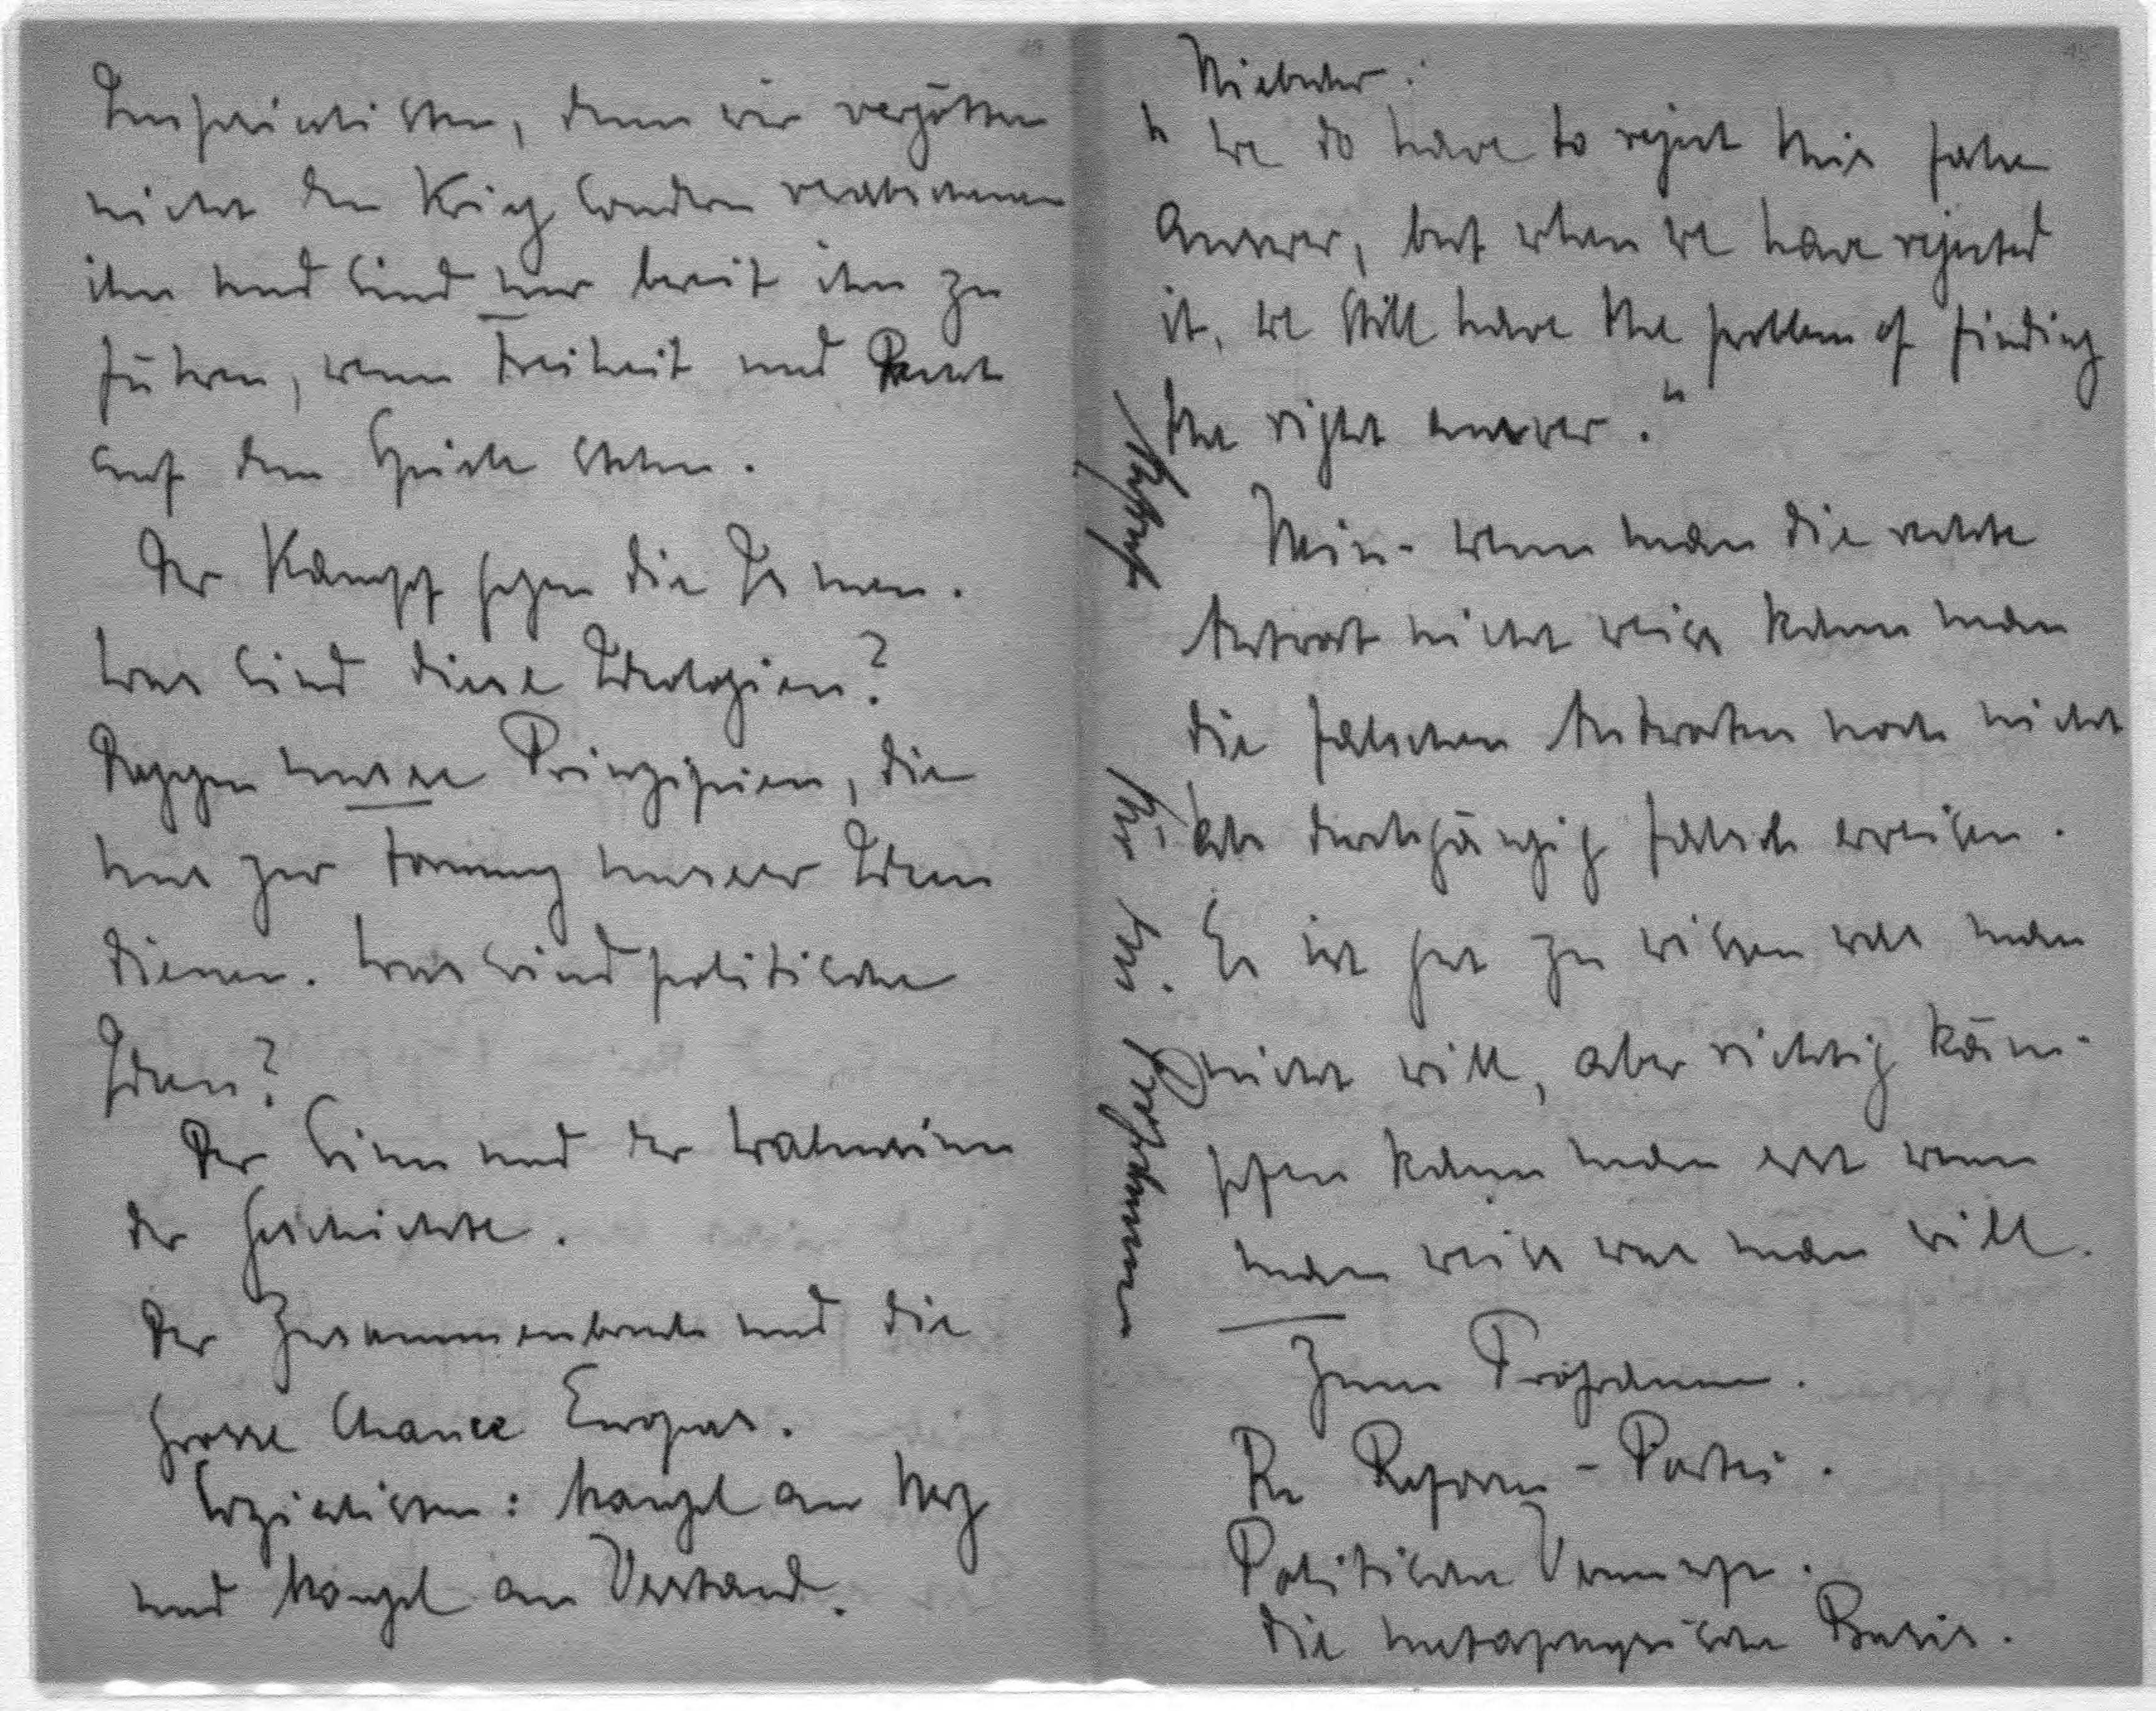 Imperialisten, denn wir vergötten
nicht den Krieg sondern verabscheuen
ihn und sind nur bereit ihn zu
führen, wenn Freiheit und Recht
auf dem Spiele stehen.
Der Kampf gegen die Ismen.
Was sind diese Ideologien?
Dagegen unsere Prinzipien, die
uns zur Formung unserer Ideen
dienen. Was sind politische
Ideen?
Der Sinn und der Wahnsinn
der Geschichte.
Der Zusammenbruch und die
grosse Chance Europas.
Sozialisten: Mangel an Herz
und Mangel an Verstand.
15
Niebuhr:
"We do have to reject this false
answer, but when we have rejected
it, we still have the problem of finding
the right answer."
Nein - wenn man die rechte
Antwort nicht weiss kann man
die falschen Antworten noch nicht
als durchgängig falsch erweisen.
Es ist gut zu wissen was man
nicht will, aber richtig käm-
pfen kann man erst wenn
man weiss was man will.
Zum Programm.
Die Reform-Partei.
Politische Vernunft.
Die metaphysische Basis.